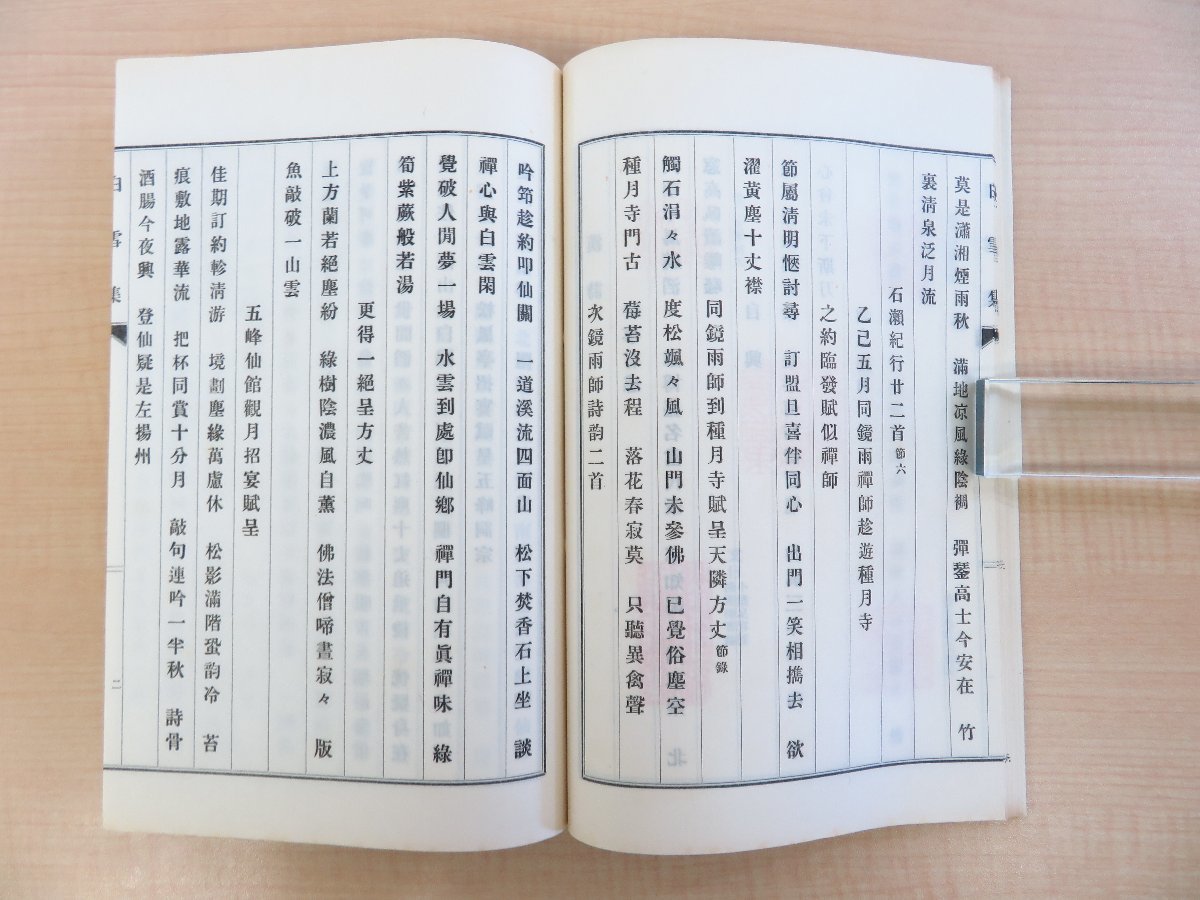 莫是瀟湘煙雨秋　滿地凉風綠陰稠　彈琴高士今安在　竹
裏淸泉泛月流
石瀨紀行廿二首 節六
乙己五月同鏡雨禪師趁遊種月寺
之約臨發賦似禪師
節屬淸明愜討尋　訂盟且喜伴同心　出門三笑相攜去　欲
濯黃塵十丈襟
同鏡雨師到種月寺賦呈天隣方丈 節錄
觸石涓々水　度松颯々風　名山門未參　佛知已覺俗塵空
種月寺門古　莓苔沒去程　落花春寂莫　只聽異禽聲
次鏡雨師詩韵二首
吟筇趁約叩仙關　一道溪流四面山　松下焚香石上坐　談
禪心與白雲閑
覺破人閒夢一場　水雲到處卽仙鄕　禪門自有眞禪味　綠
筍紫蕨般若湯
更得一絕呈方丈
上方蘭若絕塵紛　綠樹陰濃風自薰　佛法僧啼晝寂々　版
魚敲破一山雲
五峰仙館觀月招宴賦呈
佳期訂約軫淸游　境劃塵緣萬慮休　松影滿階蛩韵冷　苔
痕敷地露華流　把杯同賞十分月　敲句連吟一半秋　詩骨
酒腸今夜興　登仙疑是左揚州
白雪集
二